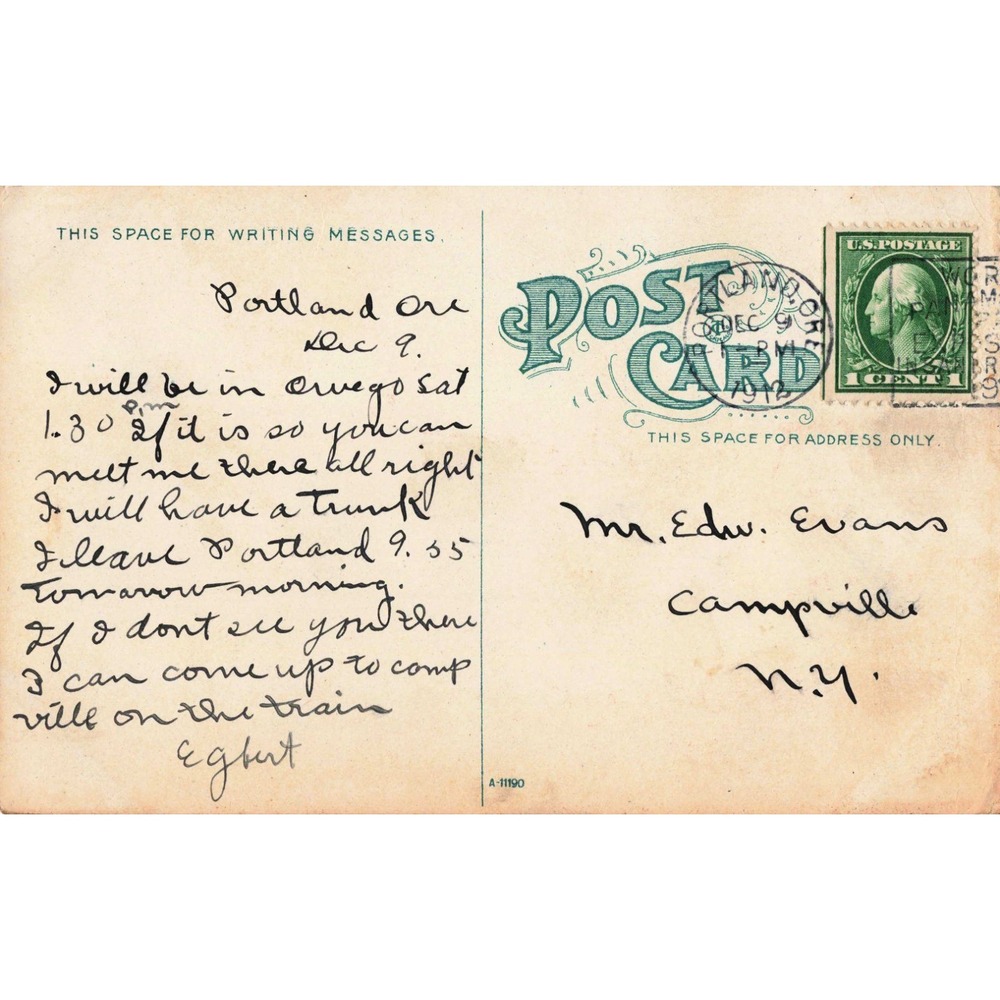 THIS SPACE FOR WRITING MESSAGES.
Portland Ore
Dec 9.
I will be in Owego Sat
p.m
1.30 If it is so you can
meet me there all right
I will have a Trunk
I leave Portland 9.55
Tomarow morning.
If I dont see you there
I can come up to camp
ville on the train
Egbert
POST CARD
THIS SPACE FOR ADDRESS ONLY.
PORTLAND, ORE
DEC 9
PM
1912
U.S. POSTAGE
1 CENT 1
Mr. Edw. Evans
Campville
N.Y.
A-11190